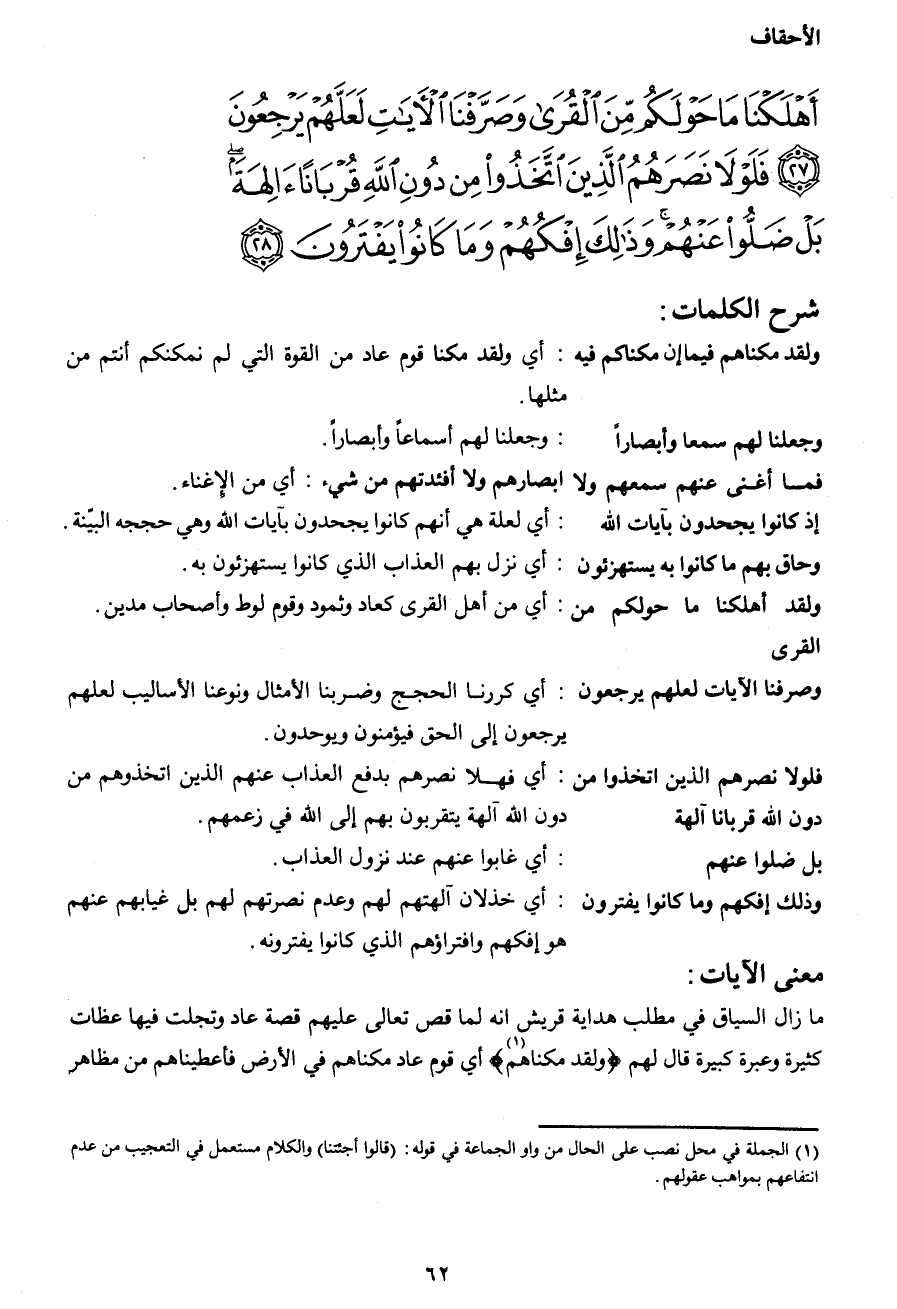 الأحقاف
أَهْلَكْنَا مَا حَوْلَكُم مِّنَ ٱلْقُرَىٰ وَصَرَّفْنَا ٱلْأَيَٰتِ لَعَلَّهُمْ يَرْجِعُونَ
﴿٢٧﴾ فَلَوْلَا نَصَرَهُمُ ٱلَّذِينَ ٱتَّخَذُوا۟ مِن دُونِ ٱللَّهِ قُرْبَانًا ءَالِهَةًۢ ۖ
بَلْ ضَلُّوا۟ عَنْهُمْ ۚ وَذَٰلِكَ إِفْكُهُمْ وَمَا كَانُوا۟ يَفْتَرُونَ ﴿٢٨﴾
شرح الكلمات :
ولقد مكناهم فيماإن مكناكم فيه : أي ولقد مكنا قوم عاد من القوة التي لم نمكنكم أنتم من
مثلها .
وجعلنا لهم سمعا وأبصاراً : وجعلنا لهم أسماعاً وأبصاراً .
فمـا أغـنى عنهم سمعهم ولا ابصارهم ولا أفئدتهم من شيء : أي من الإغناء .
إذ كانوا يجحدون بآيات الله : أي لعلة هي أنهم كانوا يجحدون بآيات الله وهي حججه البيّنة .
وحاق بهم ما كانوا به يستهزئون : أي نزل بهم العذاب الذي كانوا يستهزئون به .
ولقد أهلكنا ما حولكم من : أي من أهل القرى كعاد وثمود وقوم لوط وأصحاب مدين .
القرى
وصرفنا الآيات لعلهم يرجعون : أي كررنـا الحجـج وضـربنا الأمثال ونوعنا الأساليب لعلهم
يرجعون إلى الحق فيؤمنون ويوحدون .
فلولا نصرهم الذين اتخذوا من : أي فهـلا نصرهم بدفع العذاب عنهم الذين اتخذوهم من
دون الله قربانا آلهة دون الله آلهة يتقربون بهم إلى الله في زعمهم .
بل ضلوا عنهم : أي غابوا عنهم عند نزول العذاب .
وذلك إفكهم وما كانوا يفترون : أي خذلان آلهتهم لهم وعدم نصرتهم لهم بل غيابهم عنهم
هو إفكهم وافتراؤهم الذي كانوا يفترونه .
معنى الآيات :
ما زال السياق في مطلب هداية قريش انه لما قص تعالى عليهم قصة عاد وتجلت فيها عظات
كثيرة وعبرة كبيرة قال لهم ﴿ولقد مكناهم(١)﴾ أي قوم عاد مكناهم في الأرض فأعطيناهم من مظاهر
(١) الجملة في محل نصب على الحال من واو الجماعة في قوله : (قالوا أجئتنا) والكلام مستعمل في التعجيب من عدم
انتفاعهم بمواهب عقولهم .
٦٢